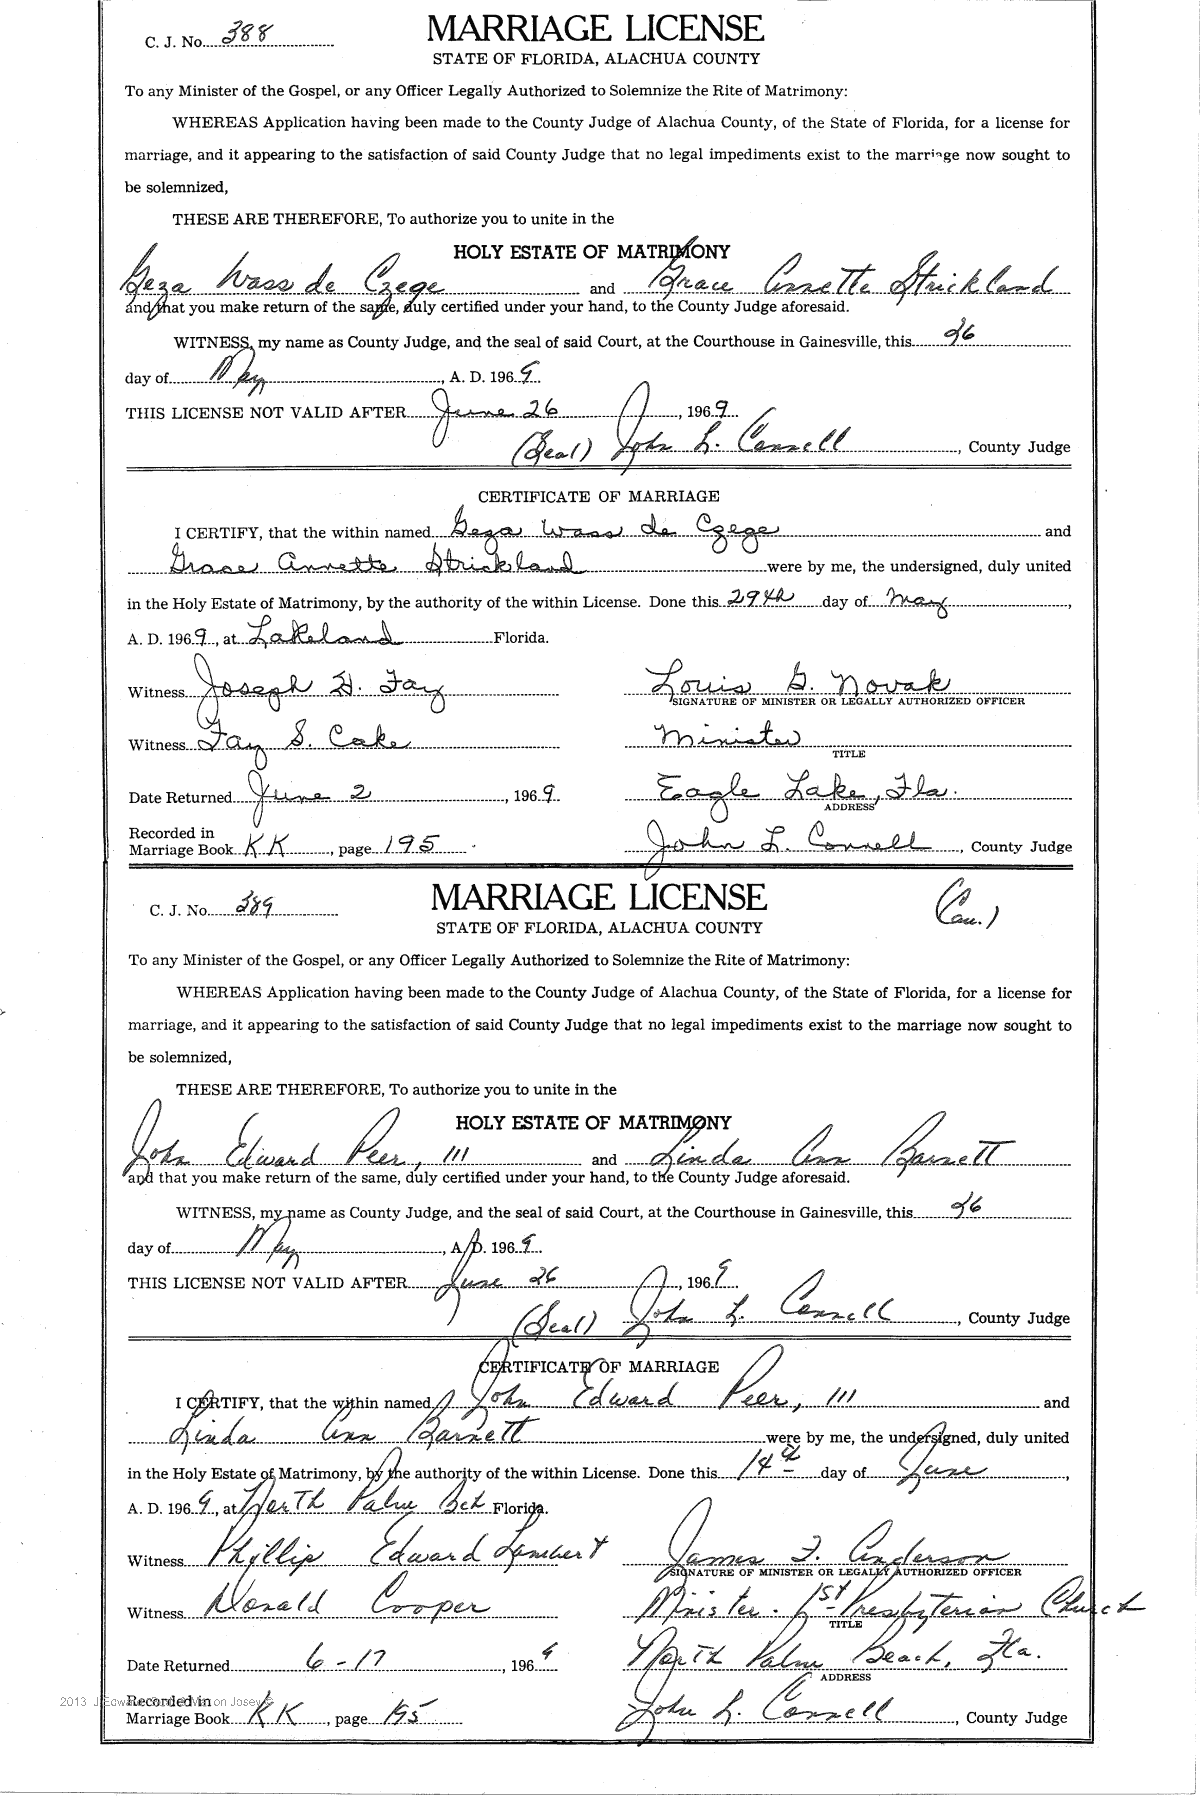 C. J. No. 388
MARRIAGE LICENSE
STATE OF FLORIDA, ALACHUA COUNTY
To any Minister of the Gospel, or any Officer Legally Authorized to Solemnize the Rite of Matrimony:
WHEREAS Application having been made to the County Judge of Alachua County, of the State of Florida, for a license for
marriage, and it appearing to the satisfaction of said County Judge that no legal impediments exist to the marriage now sought to
be solemnized,
THESE ARE THEREFORE, To authorize you to unite in the
HOLY ESTATE OF MATRIMONY
Geza Wass de Czege and Grace Annette Strickland
and that you make return of the same, duly certified under your hand, to the County Judge aforesaid.
WITNESS, my name as County Judge, and the seal of said Court, at the Courthouse in Gainesville, this 26
day of May, A. D. 1969.
THIS LICENSE NOT VALID AFTER June 26, 1969
(Seal) John L. Connell, County Judge
CERTIFICATE OF MARRIAGE
I CERTIFY, that the within named Geza Wass de Czege and
Grace Annette Strickland were by me, the undersigned, duly united
in the Holy Estate of Matrimony, by the authority of the within License. Done this 29th day of May,
A. D. 1969, at Lakeland Florida.
Witness Joseph H. Fay Louis G. Novak
SIGNATURE OF MINISTER OR LEGALLY AUTHORIZED OFFICER
Witness Fay S. Cake Minister
TITLE
Date Returned June 2, 1969 Eagle Lake, Fla.
ADDRESS
Recorded in
Marriage Book KK, page 195 John L. Connell, County Judge
C. J. No. 389
MARRIAGE LICENSE
(Cau.)
STATE OF FLORIDA, ALACHUA COUNTY
To any Minister of the Gospel, or any Officer Legally Authorized to Solemnize the Rite of Matrimony:
WHEREAS Application having been made to the County Judge of Alachua County, of the State of Florida, for a license for
marriage, and it appearing to the satisfaction of said County Judge that no legal impediments exist to the marriage now sought to
be solemnized,
THESE ARE THEREFORE, To authorize you to unite in the
HOLY ESTATE OF MATRIMONY
John Edward Peer, III and Linda Ann Barnett
and that you make return of the same, duly certified under your hand, to the County Judge aforesaid.
WITNESS, my name as County Judge, and the seal of said Court, at the Courthouse in Gainesville, this 26
day of May, A. D. 1969.
THIS LICENSE NOT VALID AFTER June 26, 1969
(Seal) John L. Connell, County Judge
CERTIFICATE OF MARRIAGE
I CERTIFY, that the within named John Edward Peer, III and
Linda Ann Barnett were by me, the undersigned, duly united
in the Holy Estate of Matrimony, by the authority of the within License. Done this 14th day of June,
A. D. 1969, at North Palm Bch Florida.
Witness Phyllip Edward Lambert James F. Anderson
SIGNATURE OF MINISTER OR LEGALLY AUTHORIZED OFFICER
Witness Donald Cooper Minister. 1st Presbyterian Church
TITLE
Date Returned 6-17, 1969 North Palm Beach, Fla.
ADDRESS
2013
Recorded in
Marriage Book KK, page 195 John L. Connell, County Judge